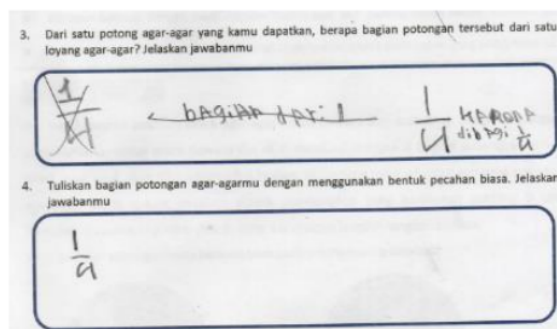 3. Dari satu potong agar-agar yang kamu dapatkan, berapa bagian potongan tersebut dari satu
loyang agar-agar? Jelaskan jawabanmu
1/4 bAgiAn dAri 1 1/4 KARQNA
dibAgi 1/4
4. Tuliskan bagian potongan agar-agarmu dengan menggunakan bentuk pecahan biasa. Jelaskan
jawabanmu
1/4